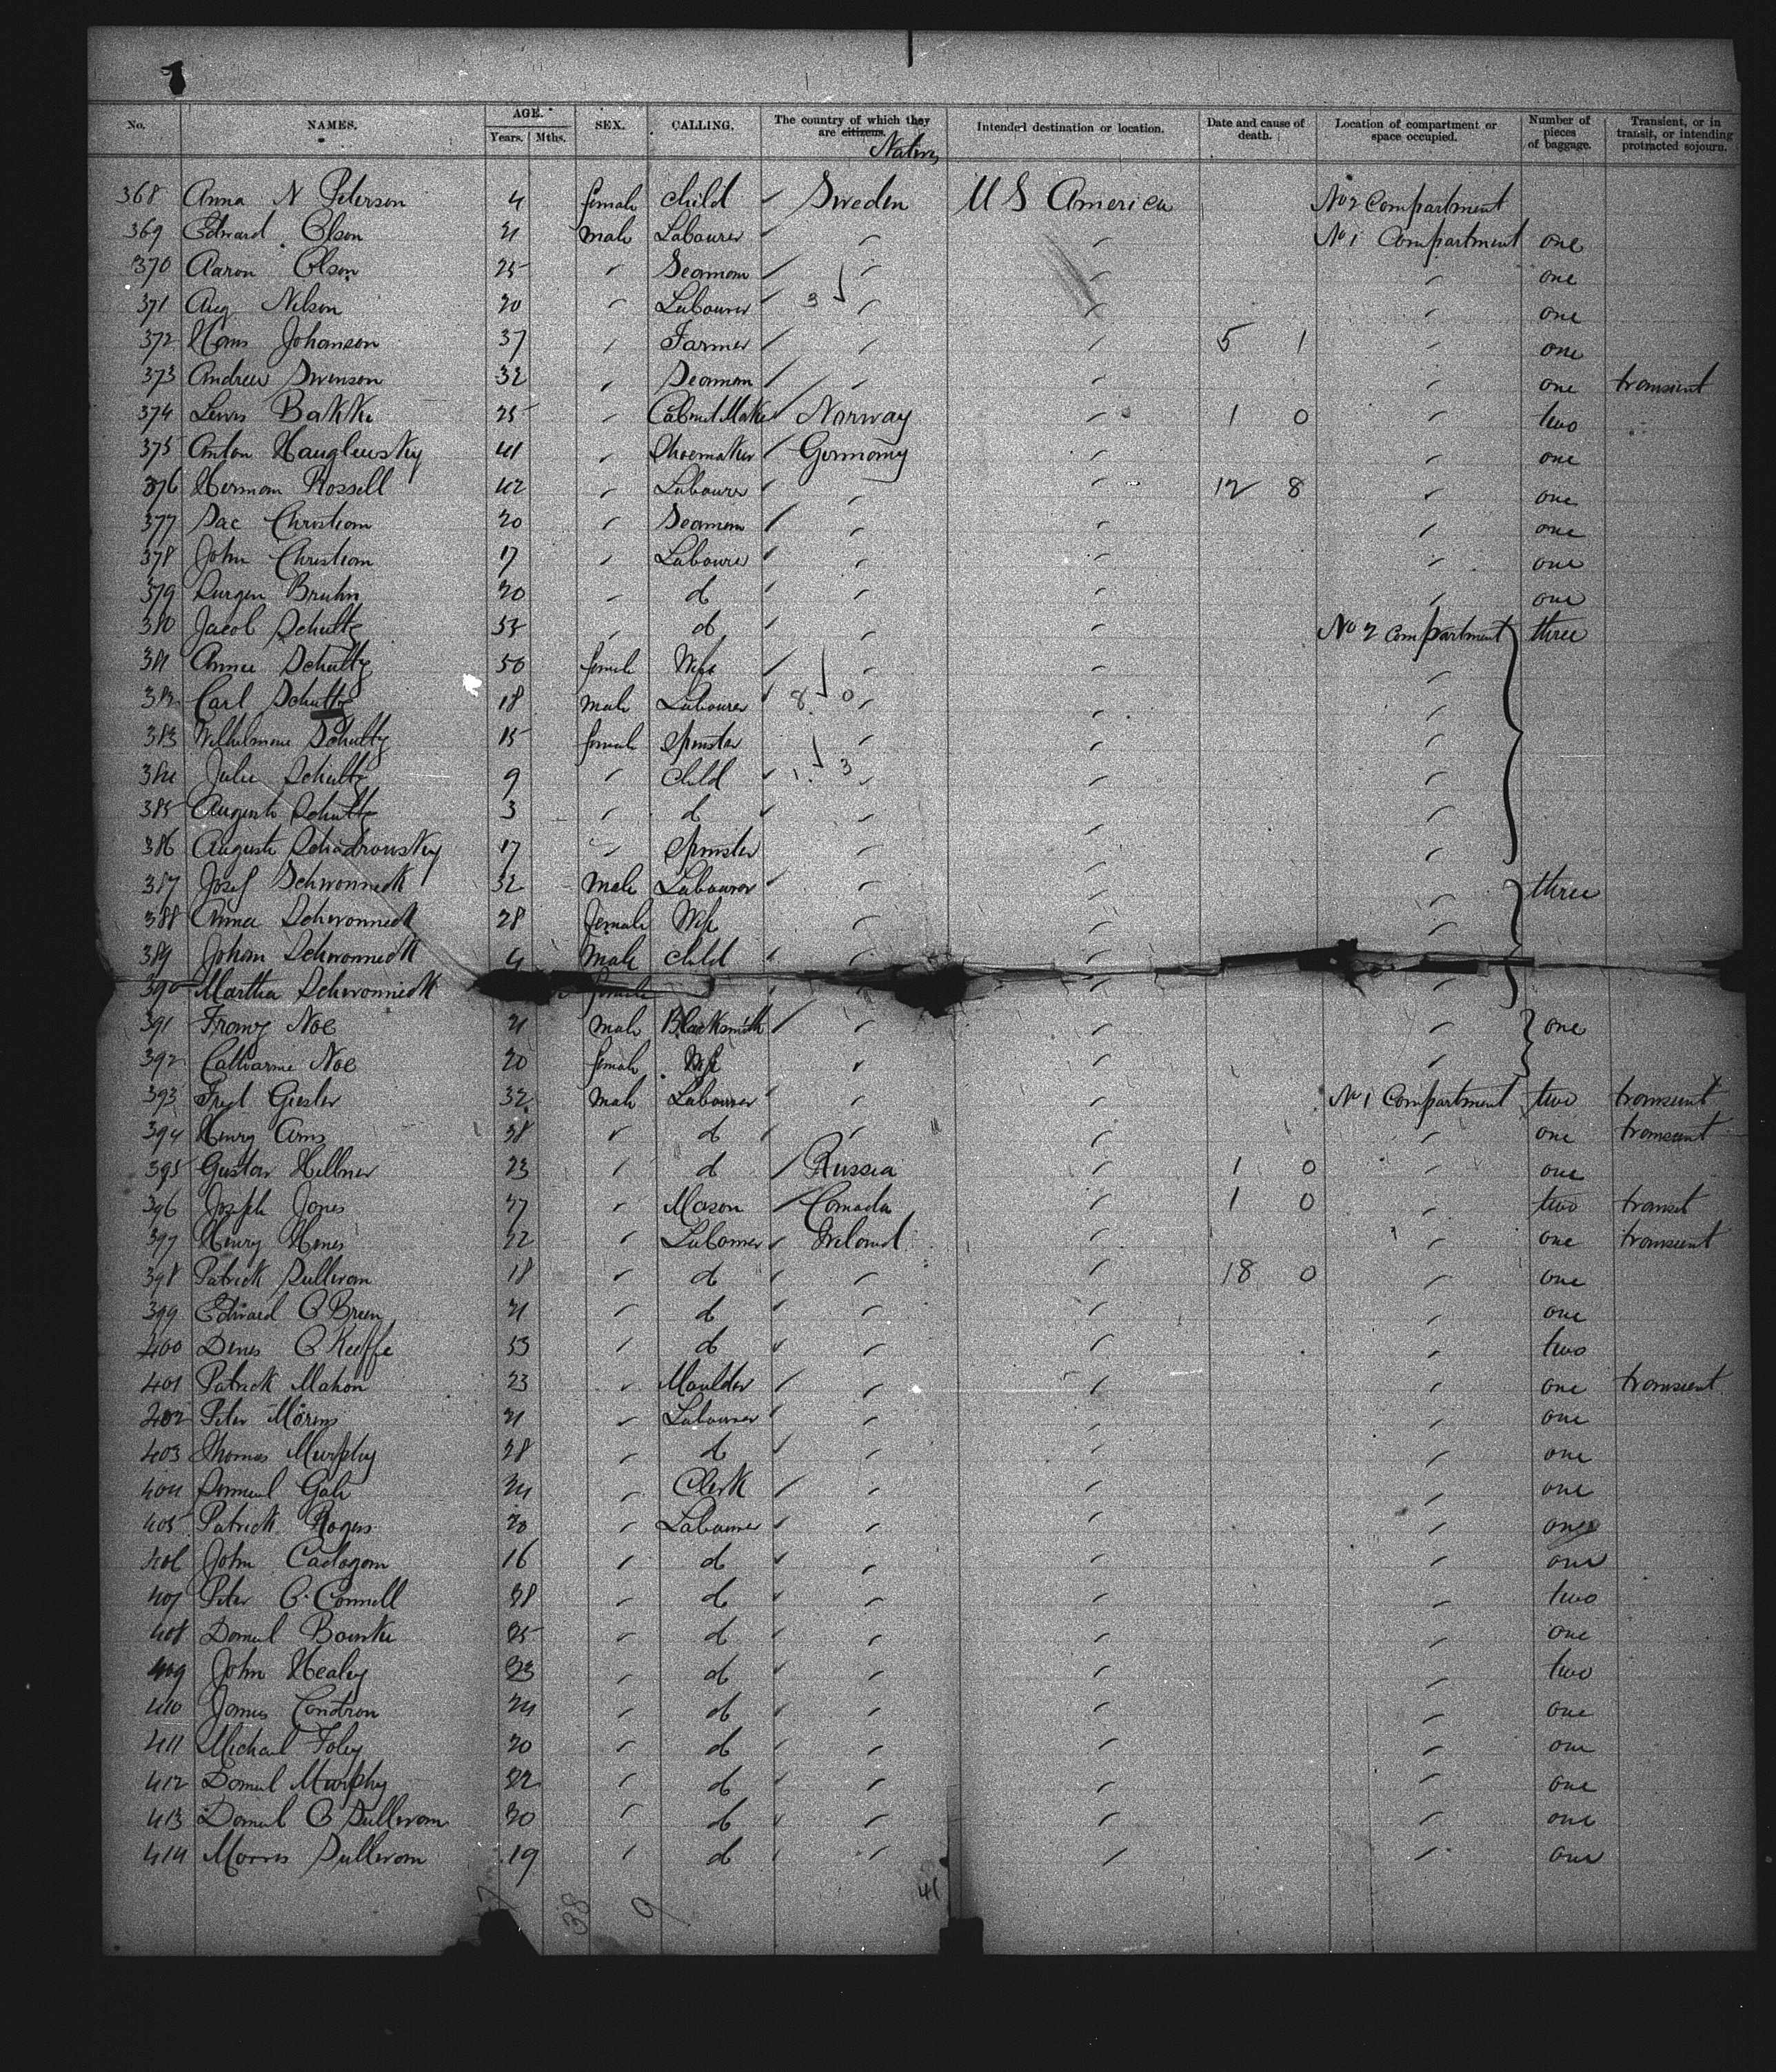 No. NAMES. AGE. Years. Mths. SEX. CALLING. The country of which they are citizens. Native Intended destination or location. Date and cause of death. Location of compartment or space occupied. Number of pieces of baggage. Transient, or in transit, or intending protracted sojourn.
368 Anna N Peterson 4 female child Sweden U S America No 2 Compartment
369 Edward Olson 21 male Labourer No 1 Compartment one
370 Aaron Olson 25 Seaman one
371 Aug Nilson 20 Labourer 3 one
372 Hans Johanson 37 Farmer 5 1 one
373 Andrew Swenson 32 Seaman one transient
374 Lewis Bakke 25 Cabinet Maker Norway 1 0 two
375 Anton 41 Shoemaker Germany one
376 Herman Rossell 42 Labourer 12 8 one
377 Christian 20 Seaman one
378 John Christian 17 Labourer one
379 Bruhn 20 d one
380 Jacob Schultz 53 d No 2 Compartment three
381 Annie Schultz 50 female Wife
382 Carl Schultz 18 male Labourer 8 0
383 Schultz 15 female Spinster
384 Julie Schultz 9 child 1 3
385 Auguste Schultz 3 d
386 Auguste 17 Spinster
387 Josef 32 male Labourer three
388 Anna 28 female Wife
389 Johan 4 male child
390 Martha female
391 Franz Noe 21 male Blacksmith one
392 Catharine Noe 20 female Wife
393 Fred Giesler 32 male Labourer No 1 Compartment two transient
394 Henry Arns 38 d one transient
395 Gustav Hillner 23 d Russia 1 0 one
396 Joseph Jones 27 Mason Canada 1 0 two transit
397 Henry Hines 22 Labourer Ireland one transient
398 Patrick Sullivan 18 d 18 0 one
399 Edward O Brien 21 d one
400 Denis O Keeffe 53 d two
401 Patrick Mahon 23 Moulder one transient
402 Peter 21 Labourer one
403 Thomas Murphy 28 d one
404 Gale 24 Clerk one
405 Patrick Rogers 20 Labourer one
406 John Cadogan 16 d one
407 Peter O'Connell 38 d two
408 Daniel Bourke 25 d one
409 John Healey 23 d two
410 James Condron 24 d one
411 Michael Foley 20 d one
412 Daniel Murphy 22 d one
413 Daniel O Sullivan 20 d one
414 Morris Sullivan 19 d one
38 9 41